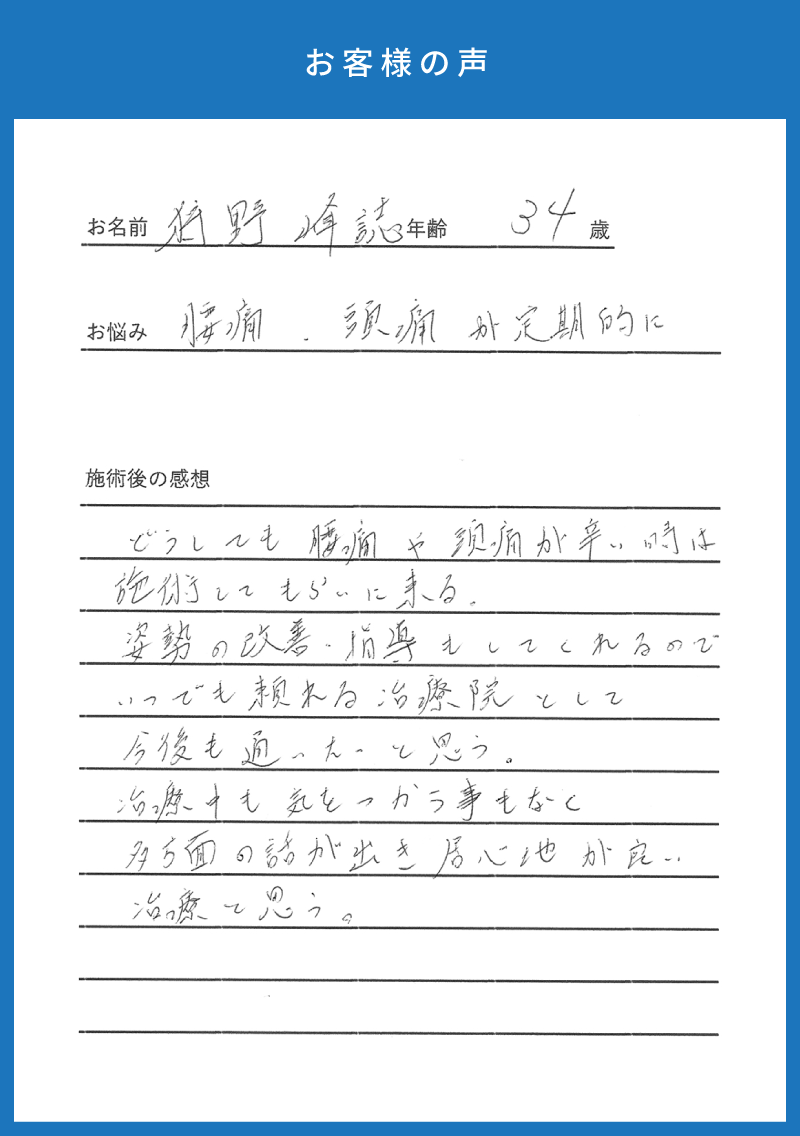 お客様の声
お名前 狩野 峰誌 年齢 34 歳
お悩み 腰痛、頭痛が定期的に
施術後の感想
どうしても腰痛や頭痛が辛い時は
施術してもらいに来る。
姿勢の改善・指導もしてくれるので
いつでも頼れる治療院として
今後も通いたいと思う。
治療中も気をつかう事もなく
多方面の話が出き居心地が良い
治療と思う。